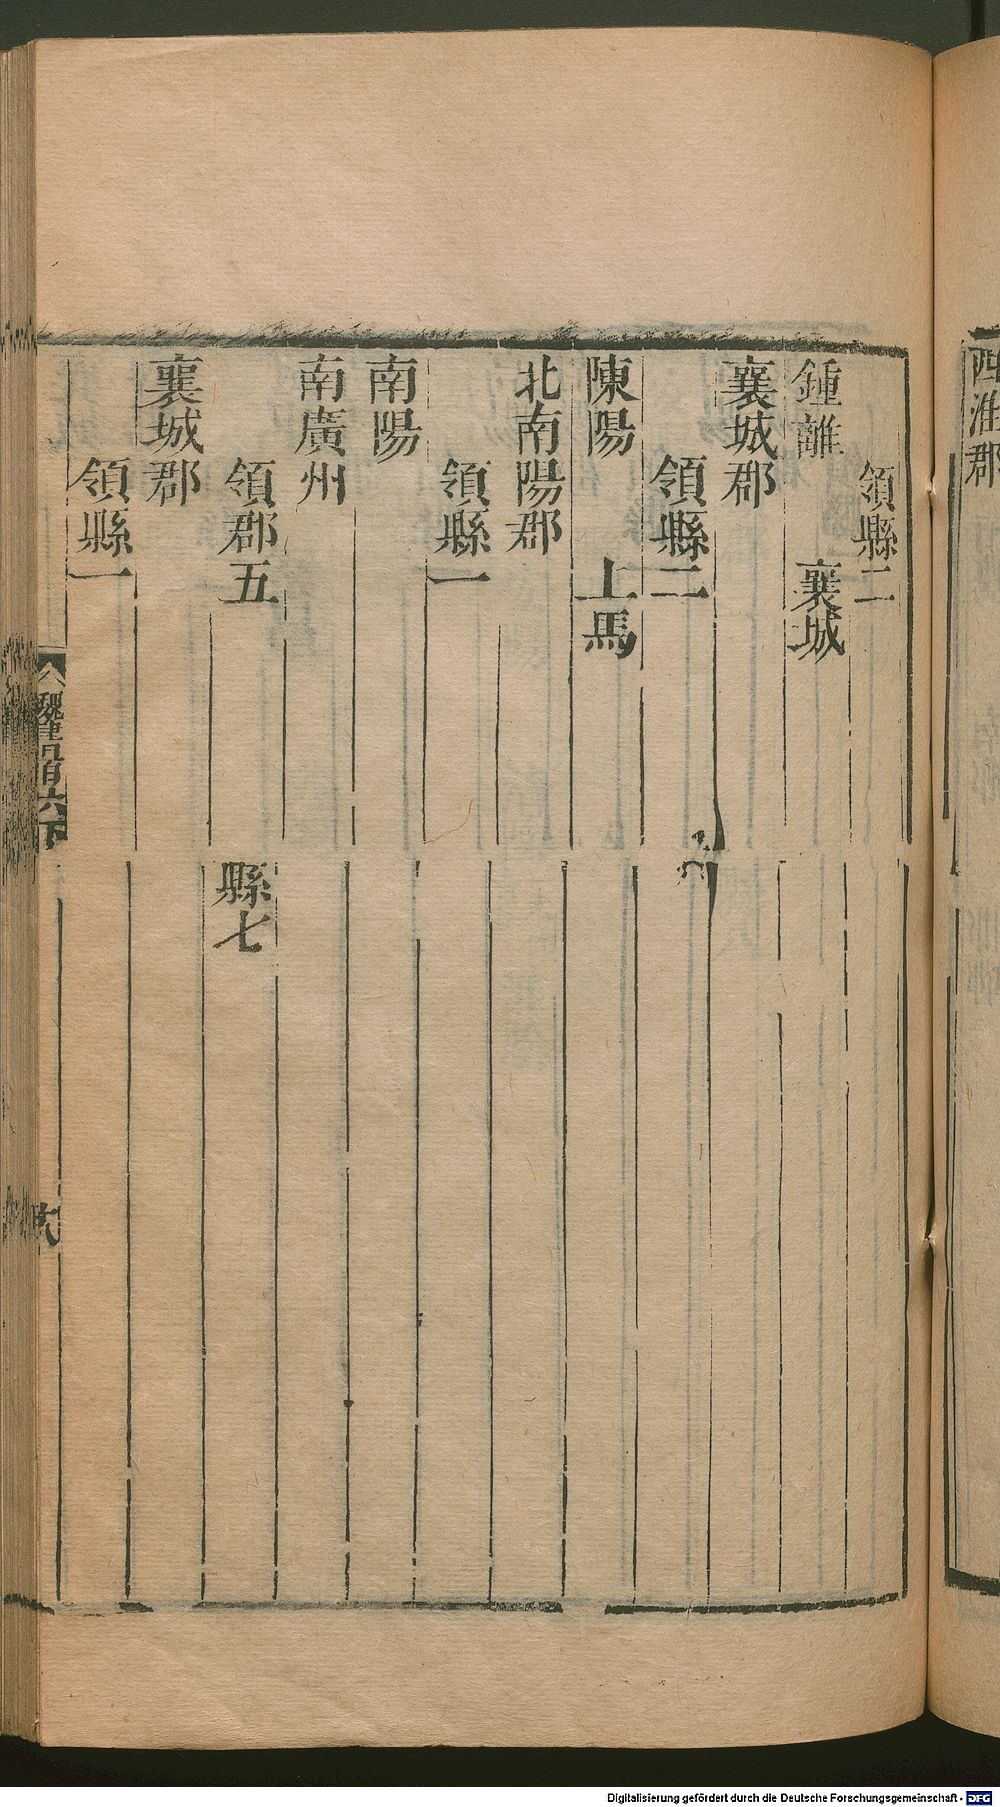 西淮郡
領縣二
鍾離　襄城
襄城郡
領縣二
陳陽　上馬
北南陽郡
領縣一
南陽
南廣州
領郡五　縣七
襄城郡
領縣一
魏書百六下
Digitalisierung gefördert durch die Deutsche Forschungsgemeinschaft - DFG